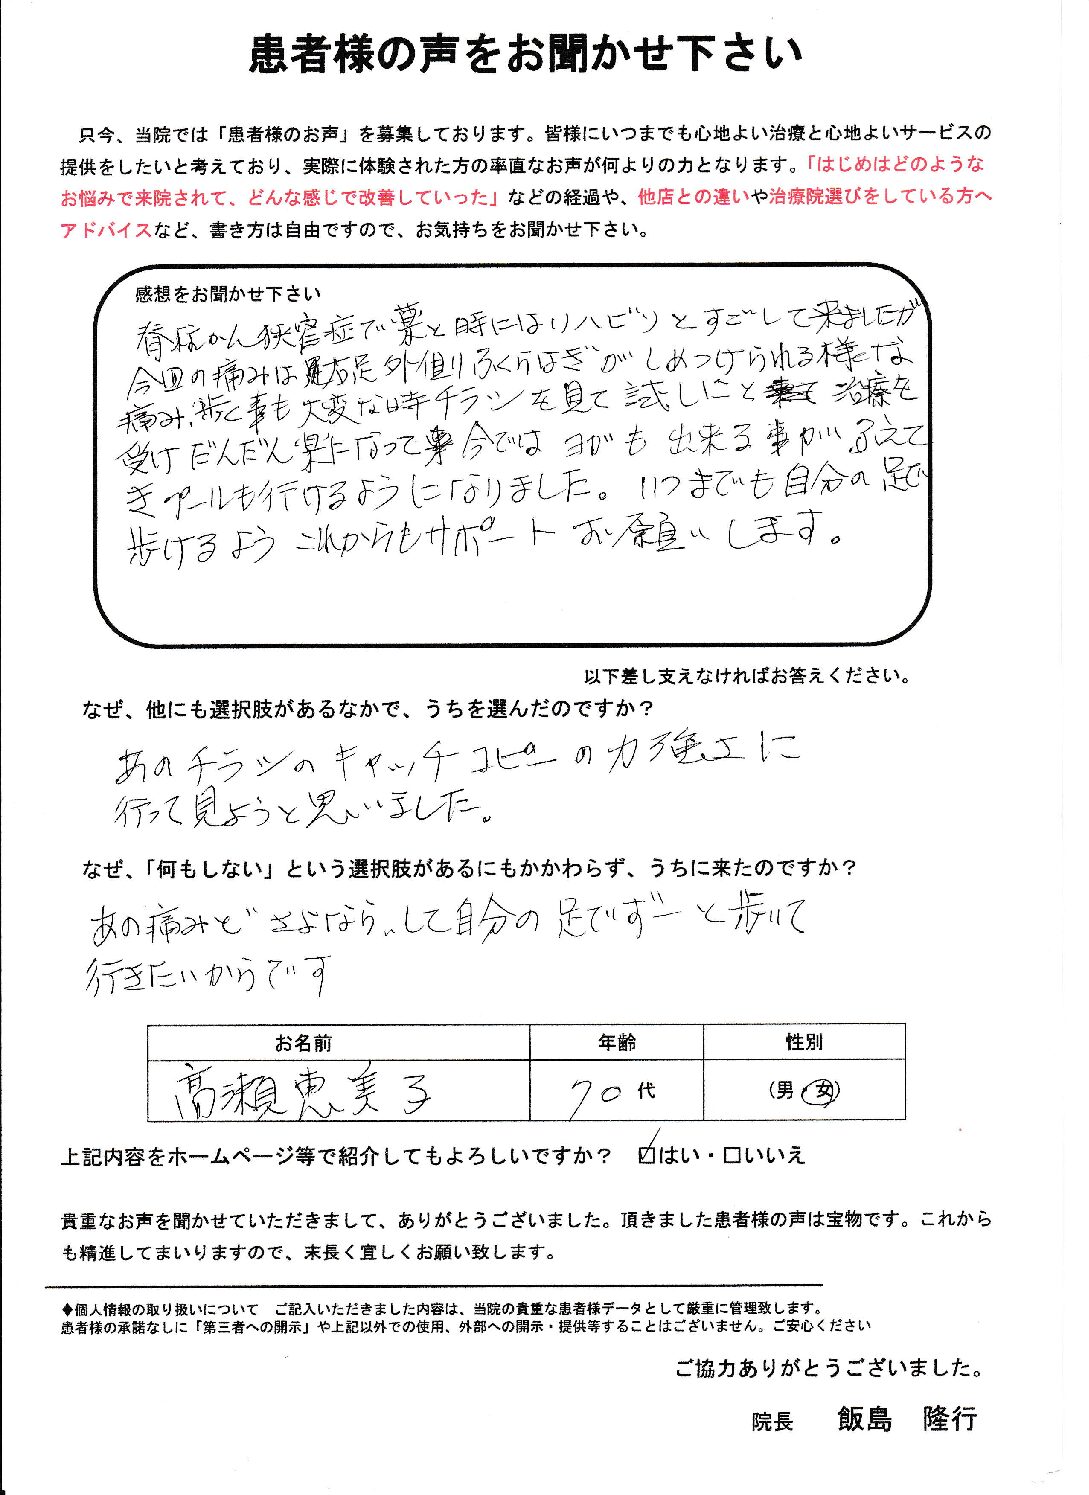 患者様の声をお聞かせ下さい
只今、当院では「患者様のお声」を募集しております。皆様にいつまでも心地よい治療と心地よいサービスの
提供をしたいと考えており、実際に体験された方の率直なお声が何よりの力となります。「はじめはどのような
お悩みで来院されて、どんな感じで改善していった」などの経過や、他店との違いや治療院選びをしている方へ
アドバイスなど、書き方は自由ですので、お気持ちをお聞かせ下さい。
感想をお聞かせ下さい
脊柱かん狭窄症で薬と時にはリハビリとすごして来ましたが
今回の痛みは右足外側ふくらはぎがしめつけられる様な
痛み、歩く事も大変な時チラシを見て試しにと治療を
受けだんだん楽になって今ではヨガも出来る事がふえて
きプールも行けるようになりました。いつまでも自分の足で
歩けるようこれからもサポートお願いします。
以下差し支えなければお答えください。
なぜ、他にも選択肢があるなかで、うちを選んだのですか？
あのチラシのキャッチコピーの力強さに
行って見ようと思いました。
なぜ、「何もしない」という選択肢があるにもかかわらず、うちに来たのですか？
あの痛みとさよならして自分の足でずーと歩いて
行きたいからです
お名前 年齢 性別
高瀬恵美子 70代 (男・女)
上記内容をホームページ等で紹介してもよろしいですか？ ☑はい・□いいえ
貴重なお声を聞かせていただきまして、ありがとうございました。頂きました患者様の声は宝物です。これから
も精進してまいりますので、末長く宜しくお願い致します。
◆個人情報の取り扱いについて ご記入いただきました内容は、当院の貴重な患者様データとして厳重に管理致します。
患者様の承諾なしに「第三者への開示」や上記以外での使用、外部への開示・提供等することはございません。ご安心ください
ご協力ありがとうございました。
院長 飯島 隆行